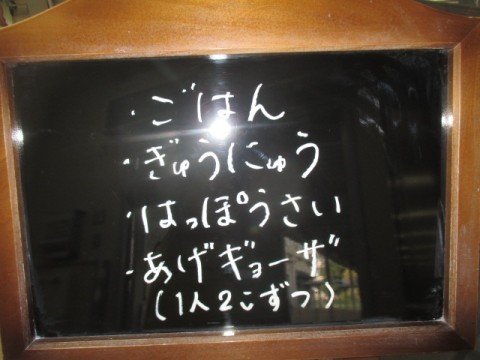 ・ごはん
・ぎゅうにゅう
・はっぽうさい
・あげギョーザ
(1人2こずつ)